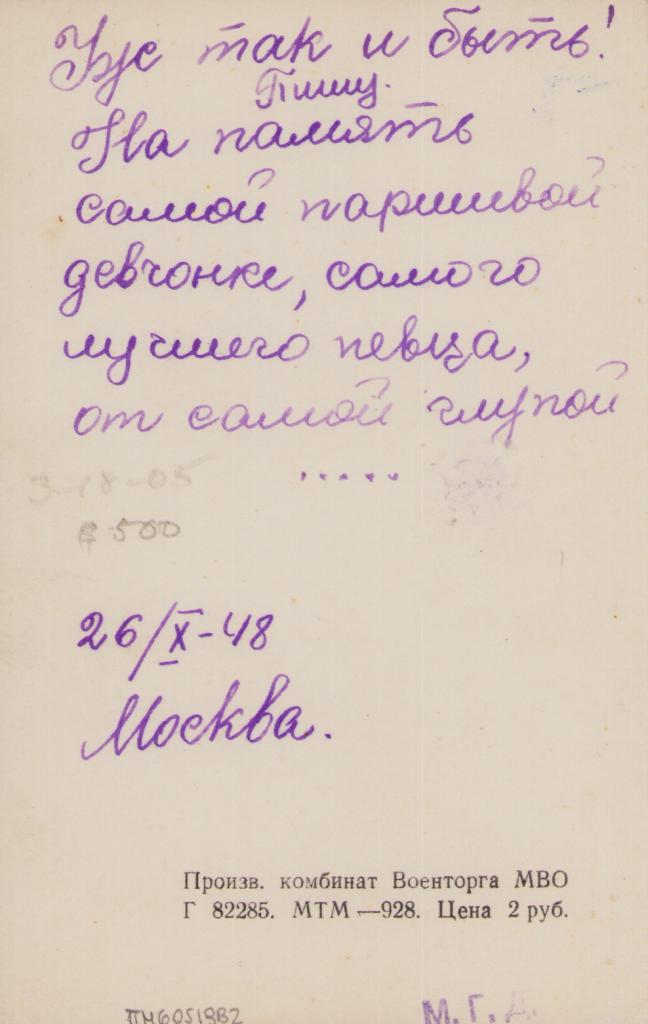 Уж так и быть!
Пишу.
На память
самой паршивой
девчонке, самого
лучшего певца,
от самой глупой
.....
3-18-05
500
26/X-48
Москва.
Произв. комбинат Военторга МВО
Г 82285. МТМ —928. Цена 2 руб.
М. Г. Д.